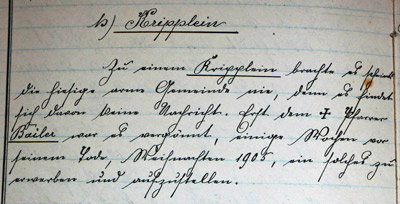 b) Kripplein
Zu einem Kripplein brachte es scheint
die hiesige arme Gemeinde nie, denn es findet
sich davon keine Nachricht. Erst dem ✝ Pfarrer
Bäiler war es vergönnt, einige Wochen vor
seinem Tode, Weihnachten 1905, ein solches zu
erwerben und aufzustellen.